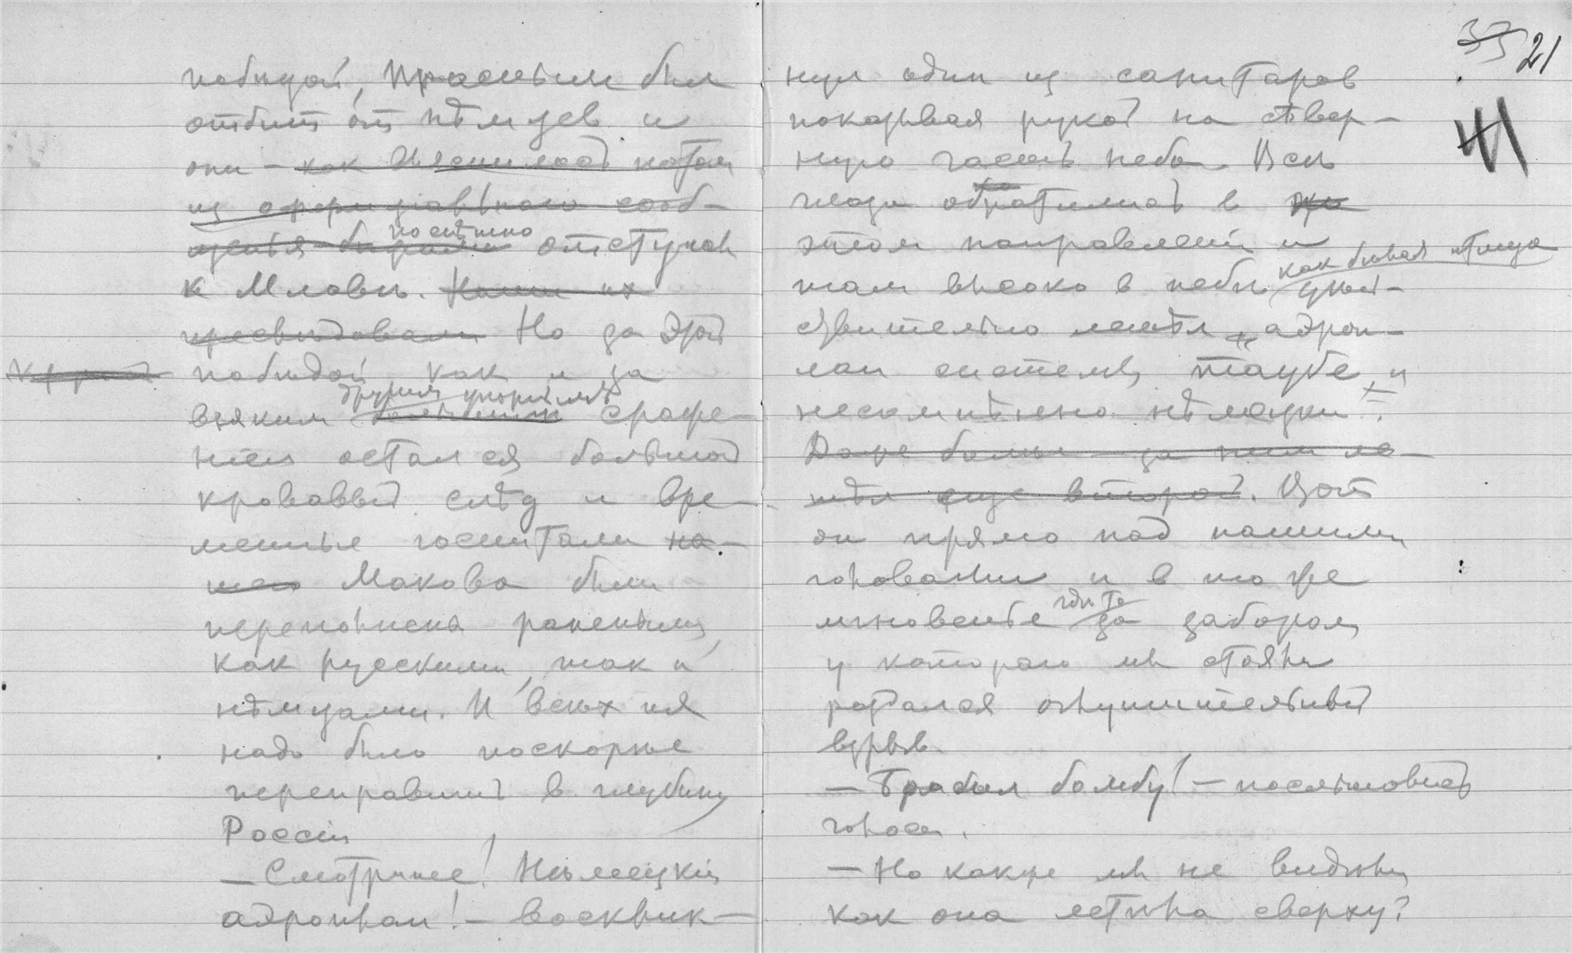 побѣдой, Праснышъ был
отбит от нѣмцев и
они – как выяснилось потом
из официальнаго сооб-
щенья поспѣшно отступали
к Млавѣ. Наши их
преслѣдовали Но за этой
побѣдой как и за
всяким другим упорным сраже-
ніем остался большой
кровавый слѣд и вре-
менные госпитали на-
ше Макова были
переполнены ранеными,
как русскими, так и
нѣмцами. И всѣх их
надо было поскорѣе
переправить в глубину
Россіи
– Смотрите! Нѣмецкій
аэроплан! – воскрик-
33 21
нул один из санитаров
показывая рукой на сѣвер-
ную часть неба. Всѣ
люди обратились в
этом направленіи и
там высоко в небѣ как бѣлая птица
дѣйствительно летѣл аэроп-
лан системы Таубе и
несомнѣнно нѣмецкій.
Даже больше – за ним ле-
тѣл еще второй. Вот
он прямо над нашими
головами и в то же
мгновенье гдѣ то за забором,
у котораго мы стояли
раздался оглушительный
взрыв.
– Бросил бомбу! – послышались
голоса.
– Но как же мы не видѣли
как она летѣла сверху?